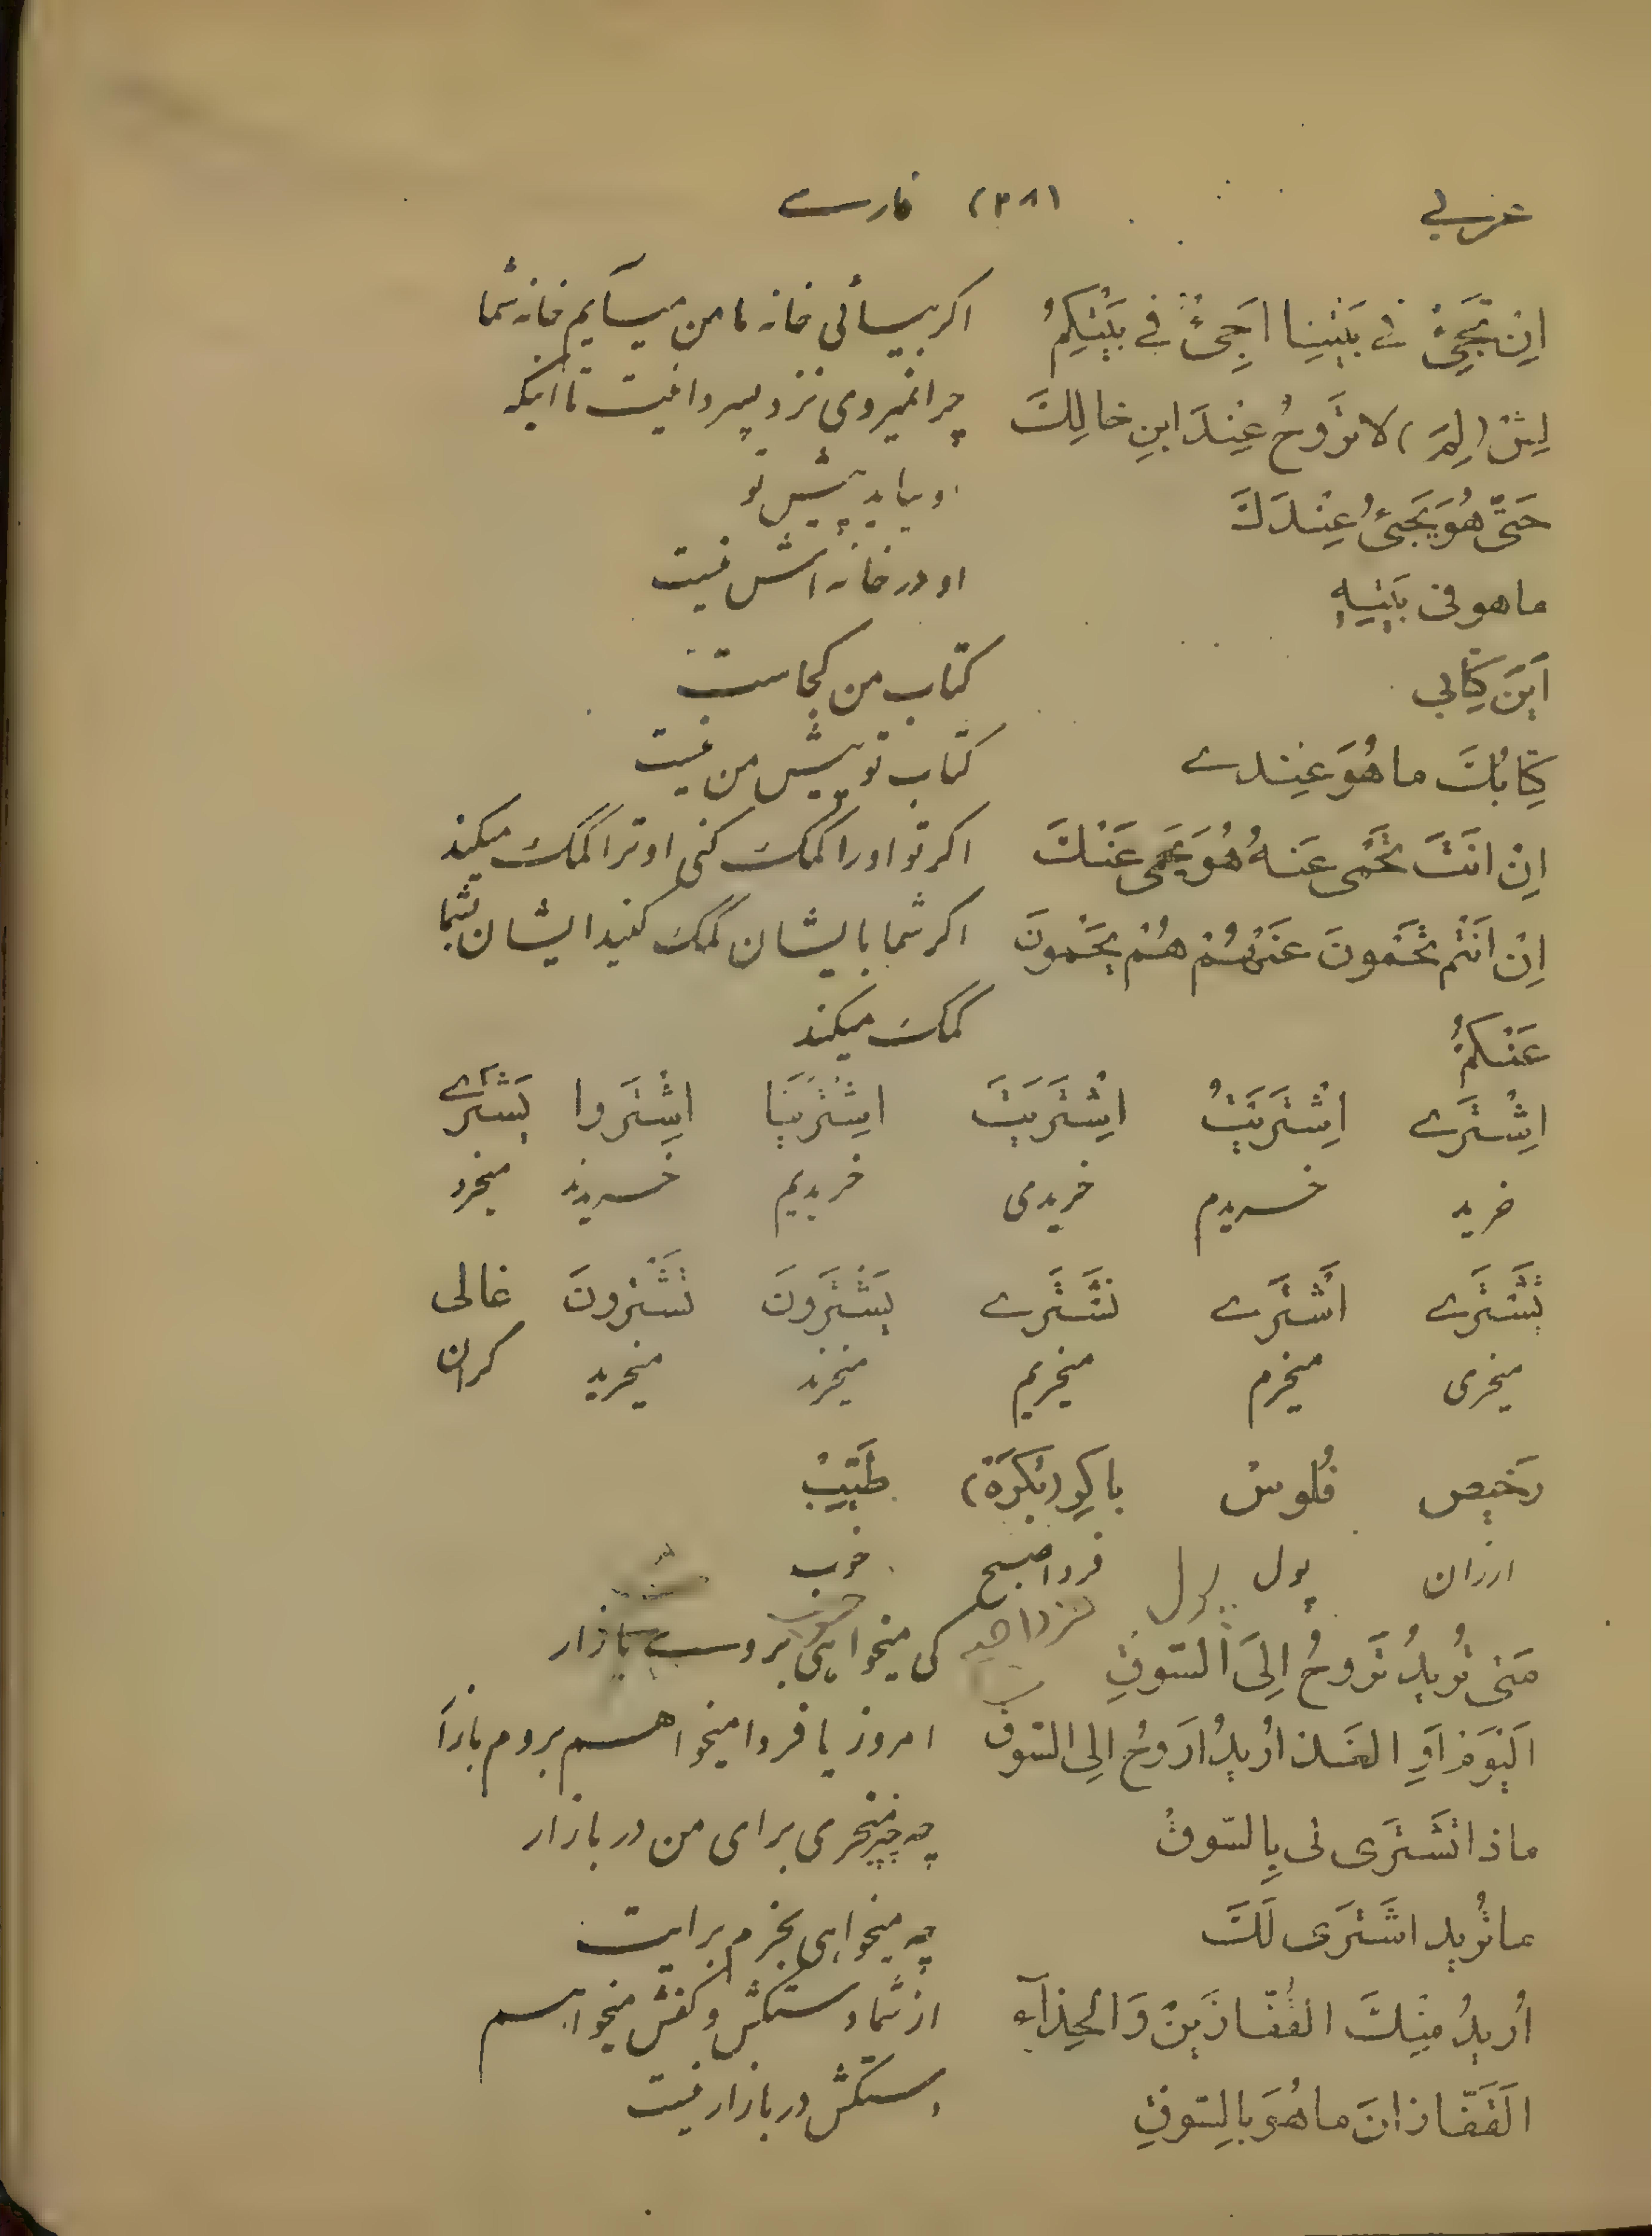 عربي (۳۸) فارسے
اِنْ تَجَئْ في بَيْتِنا اَجِئُ في بَيْتِكُمْ اکر بیائی خانه ما من میآیم خانه شما
لِشْ (لِمَ) لا تَرُوحُ عِنْدَ ابنِ خالِكَ چرا نمیروی نزد پسر دائیت تا اینکه
حَتّى هُوَ يَجئُ عِنْدَكَ او بیاید پیش تو
ما هو فى بَيْتِهِ او در خانه اش نیست
اَينَ كِتابي کتاب من کجاست
كِتابُكَ ما هُوَ عِندے کتاب تو پیش من نیست
اِنْ انتَ تَحْمى عَنهُ هُوَ يَحْمى عَنْكَ اکر تو اورا کمک کنی او ترا کمک میکند
اِنْ اَنْتُم تَحْمونَ عَنْهُمْ هُمْ يَحْمونَ اکر شما بایشان کمک کنید ایشان بشما
عَنْكُمْ کمک میکند
اِشْتَرے اِشْتَرَيْتُ اِشْتَرَيتَ اِشْتَرَيْنا اِشْتَروا يَشْتَرے
خرید خریدم خریدی خریدیم خریدند میخرد
تَشْتَرے اَشْتَرے نَشْتَرے يَشْتَرونَ تَشْتَرونَ غالى
میخری میخرم میخریم میخرند میخرید کران
رَخيص فُلوسْ باكِر (بُكرَة) طَيّبْ
ارزان پول پول فردا صبح خوب
مَتى تُريدُ تَروحُ اِلىَ السّوقِ کی میخواهی بروے بازار
اَليَوْمَ اَوِ الغَد اُريدُ اَروحُ اِلى السّوق امروز یا فردا میخواهم بروم بازار
ماذا تَشْتَرى لى بِالسّوق چه چیز میخری برای من در بازار
ما تُريد اشْتَرى لَكَ چه میخواهی بخرم برایت
اُريدُ مِنكَ القُفّازَينْ وَالحِذآء از شما دستکش و کفش میخواهم
اَلقَفّازانَ ما هُوَ بالِسّوقِ دستکش در بازار نیست